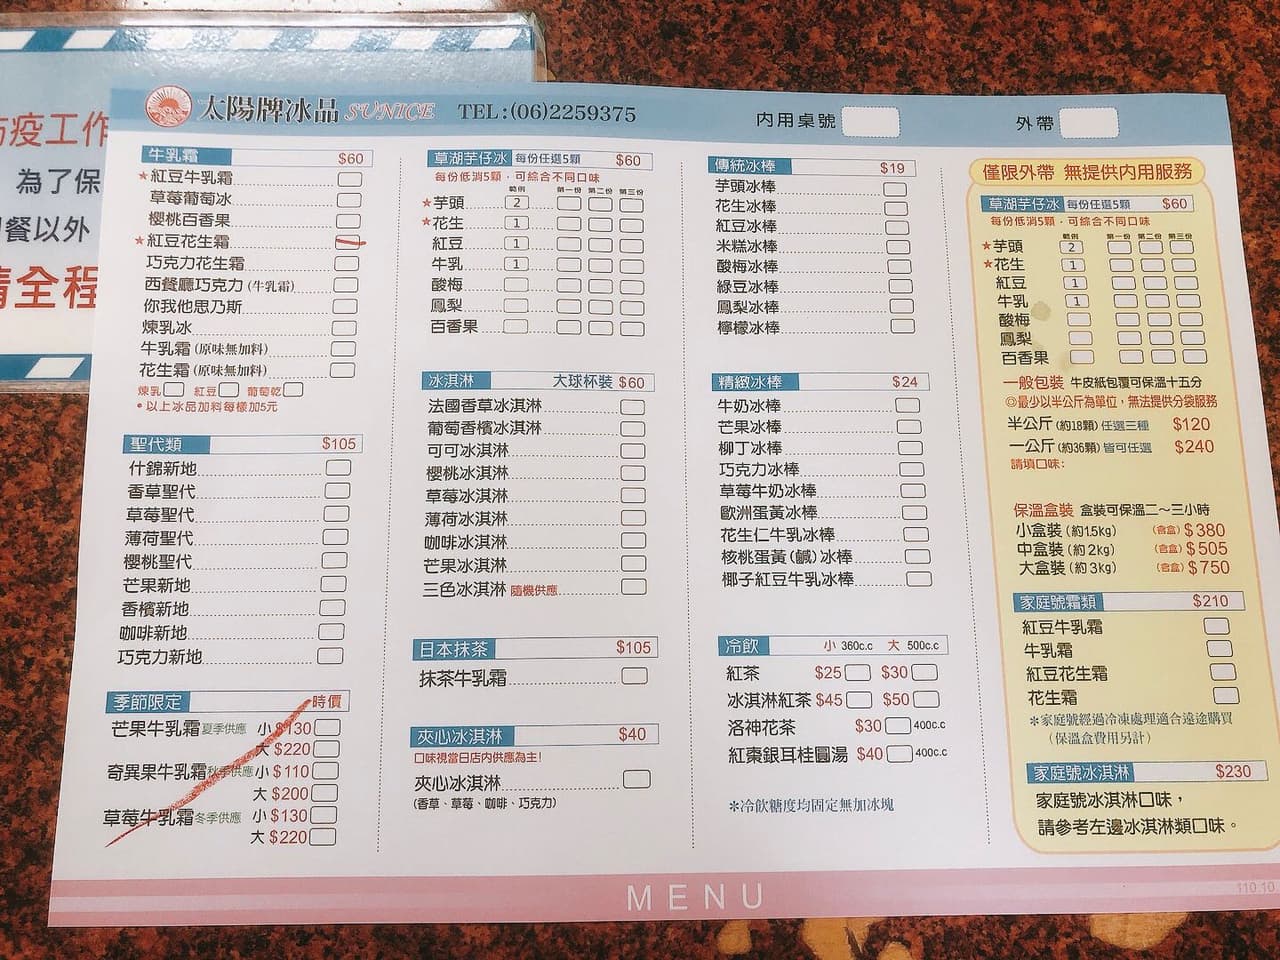 防疫工作
為了保
餐以外
請全程
太陽牌冰品 SUNICE TEL:(06)2259375 內用桌號 外帶
牛乳霜 $60
★紅豆牛乳霜
草莓葡萄冰
櫻桃百香果
★紅豆花生霜
巧克力花生霜
西餐廳巧克力(牛乳霜)
你我他思乃斯
煉乳冰
牛乳霜(原味無加料)
花生霜(原味無加料)
煉乳 紅豆 葡萄乾
•以上冰品加料每樣加5元
聖代類 $105
什錦新地
香草聖代
草莓聖代
薄荷聖代
櫻桃聖代
芒果新地
香檳新地
咖啡新地
巧克力新地
季節限定 時價
芒果牛乳霜 夏季供應 小 $130
大 $220
奇異果牛乳霜 秋季供應 小 $110
大 $200
草莓牛乳霜 冬季供應 小 $130
大 $220
草湖芋仔冰 每份任選5顆 $60
每份低消5顆,可綜合不同口味
範例 第一份 第二份 第三份
★芋頭 2
★花生 1
紅豆 1
牛乳 1
酸梅
鳳梨
百香果
冰淇淋 大球杯裝 $60
法國香草冰淇淋
葡萄香檳冰淇淋
可可冰淇淋
櫻桃冰淇淋
草莓冰淇淋
薄荷冰淇淋
咖啡冰淇淋
芒果冰淇淋
三色冰淇淋 隨機供應
日本抹茶 $105
抹茶牛乳霜
夾心冰淇淋 $40
口味視當日店內供應為主!
夾心冰淇淋
(香草、草莓、咖啡、巧克力)
傳統冰棒 $19
芋頭冰棒
花生冰棒
紅豆冰棒
米糕冰棒
酸梅冰棒
綠豆冰棒
鳳梨冰棒
檸檬冰棒
精緻冰棒 $24
牛奶冰棒
芒果冰棒
柳丁冰棒
巧克力冰棒
草莓牛奶冰棒
歐洲蛋黃冰棒
花生仁牛乳冰棒
核桃蛋黃(鹹)冰棒
椰子紅豆牛乳冰棒
冷飲 小 360c.c 大 500c.c
紅茶 $25 $30
冰淇淋紅茶 $45 $50
洛神花茶 $30 400c.c
紅棗銀耳桂圓湯 $40 400c.c
*冷飲糖度均固定無加冰塊
僅限外帶 無提供內用服務
草湖芋仔冰 每份任選5顆 $60
每份低消5顆,可綜合不同口味
範例 第一份 第二份 第三份
★芋頭 2
★花生 1
紅豆 1
牛乳 1
酸梅
鳳梨
百香果
一般包裝 牛皮紙包覆可保溫十五分
◎最少以半公斤為單位,無法提供分袋服務
半公斤(約18顆)任選三種 $120
一公斤(約36顆)皆可任選 $240
請填口味:
保溫盒裝 盒裝可保溫二~三小時
小盒裝(約1.5kg) (含盒)$380
中盒裝(約2kg) (含盒)$505
大盒裝(約3kg) (含盒)$750
家庭號霜類 $210
紅豆牛乳霜
牛乳霜
紅豆花生霜
花生霜
*家庭號經過冷凍處理適合遠途購買
(保溫盒費用另計)
家庭號冰淇淋 $230
家庭號冰淇淋口味,
請參考左邊冰淇淋類口味。
MENU
110.10